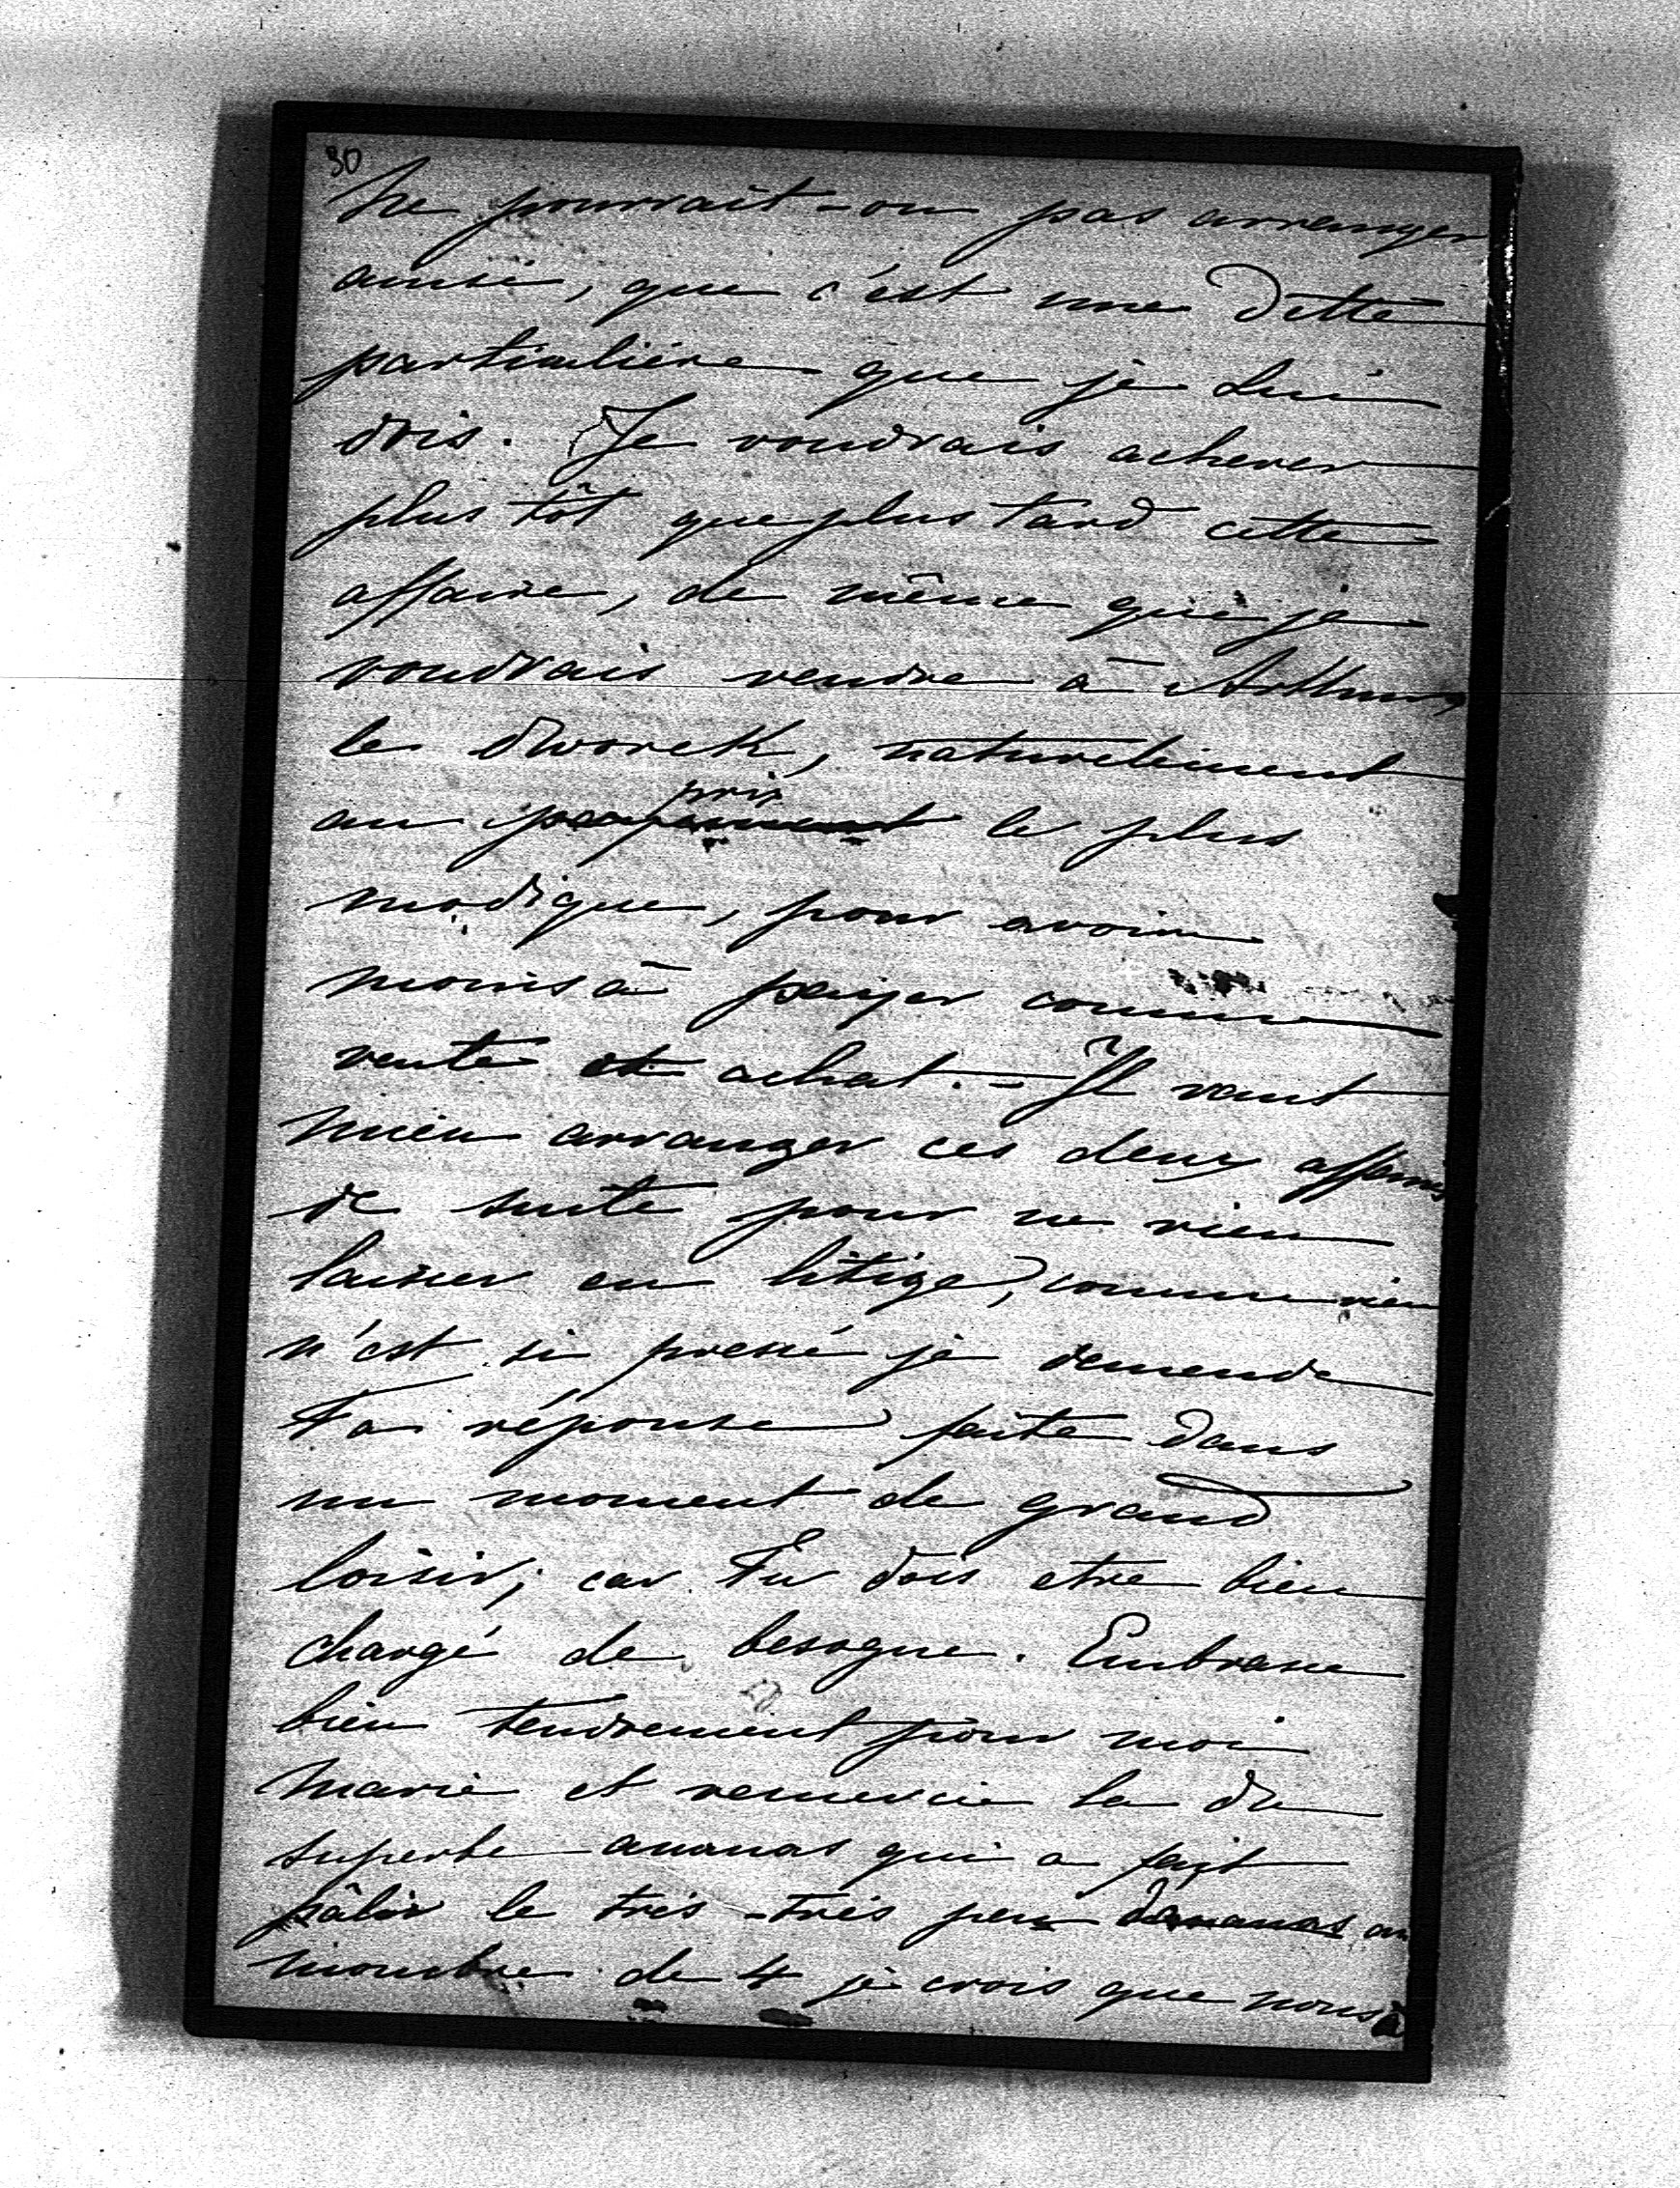 30
Ne pourrait-on pas arranger
ainsi, que c'est une dette
particulière que je Lui
dois. Je voudrais achever
plus tôt que plus tard cette
affaire, de même que je
voudrais vendre à Arthur,
le dworek, naturellement
prix
au payement le plus
modique, pour avoir
moins à payer comme
vente et achat. - Il vaut
mieu arranger ces deux affaires
de suite pour ne rien
laisser en litige, comme rien
n'est si pressé je demende
Ta réponse faite dans
un moment de grand
loisir; car Tu dois etre bien
chargé de besogne. Embrasse
bien tendrement pour moi
Marie et remercie la du
superbe ananas qui a fait
pâlir le très-très peu d'ananas au
nombre de 4 je crois que nous a